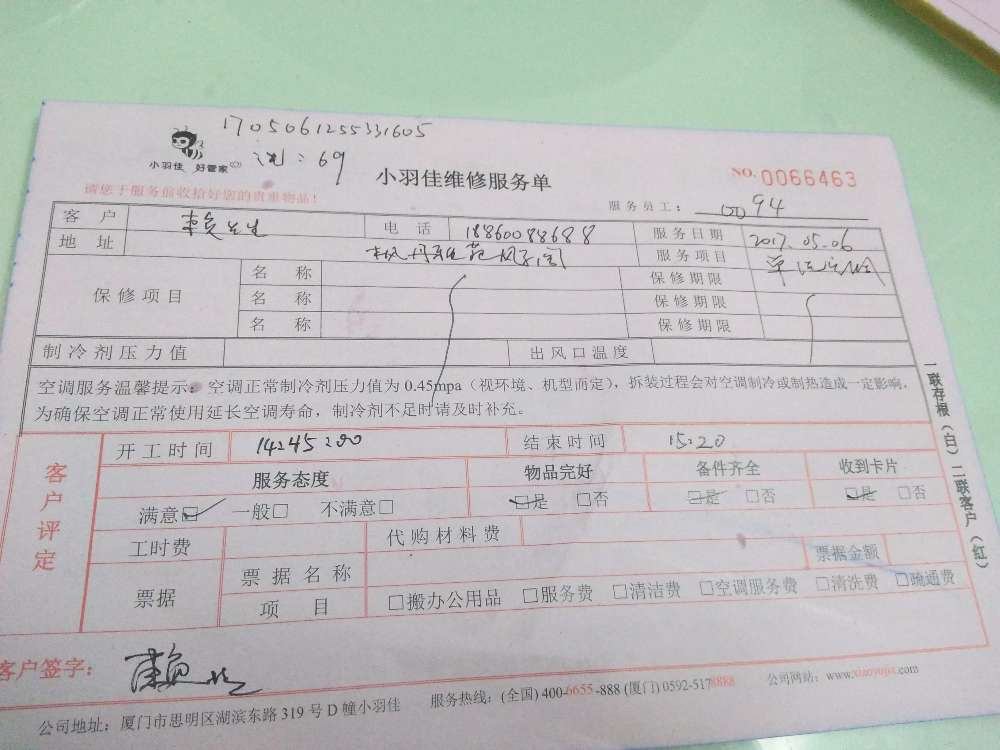 1705061255331605
小羽佳 好管家
: 69
小羽佳维修服务单
NO. 0066463
请您于服务前收拾好您的贵重物品!
服务员工: 94
客户 赖先生 电话 18860088688 服务日期 2017.05.06
地址 服务项目
保修项目 名称 保修期限
名称 保修期限
名称 保修期限
制冷剂压力值 出风口温度
空调服务温馨提示: 空调正常制冷剂压力值为0.45mpa(视环境、机型而定),拆装过程会对空调制冷或制热造成一定影响,
为确保空调正常使用延长空调寿命,制冷剂不足时请及时补充。
一联存根(白)二联客户(红)
客户评定
开工时间 14:45:00 结束时间 15:20
服务态度 物品完好 备件齐全 收到卡片
满意☑ 一般□ 不满意□ ☑是 □否 ☑是 □否 ☑是 □否
工时费 代购材料费
票据 票据名称 票据金额
项目 □搬办公用品 □服务费 □清洁费 □空调服务费 □清洗费 □疏通费
客户签字: 赖
公司地址: 厦门市思明区湖滨东路319号D幢小羽佳 服务热线: (全国) 400-6655-888 (厦门) 0592-5178888 公司网站: www.xiaoyujia.com